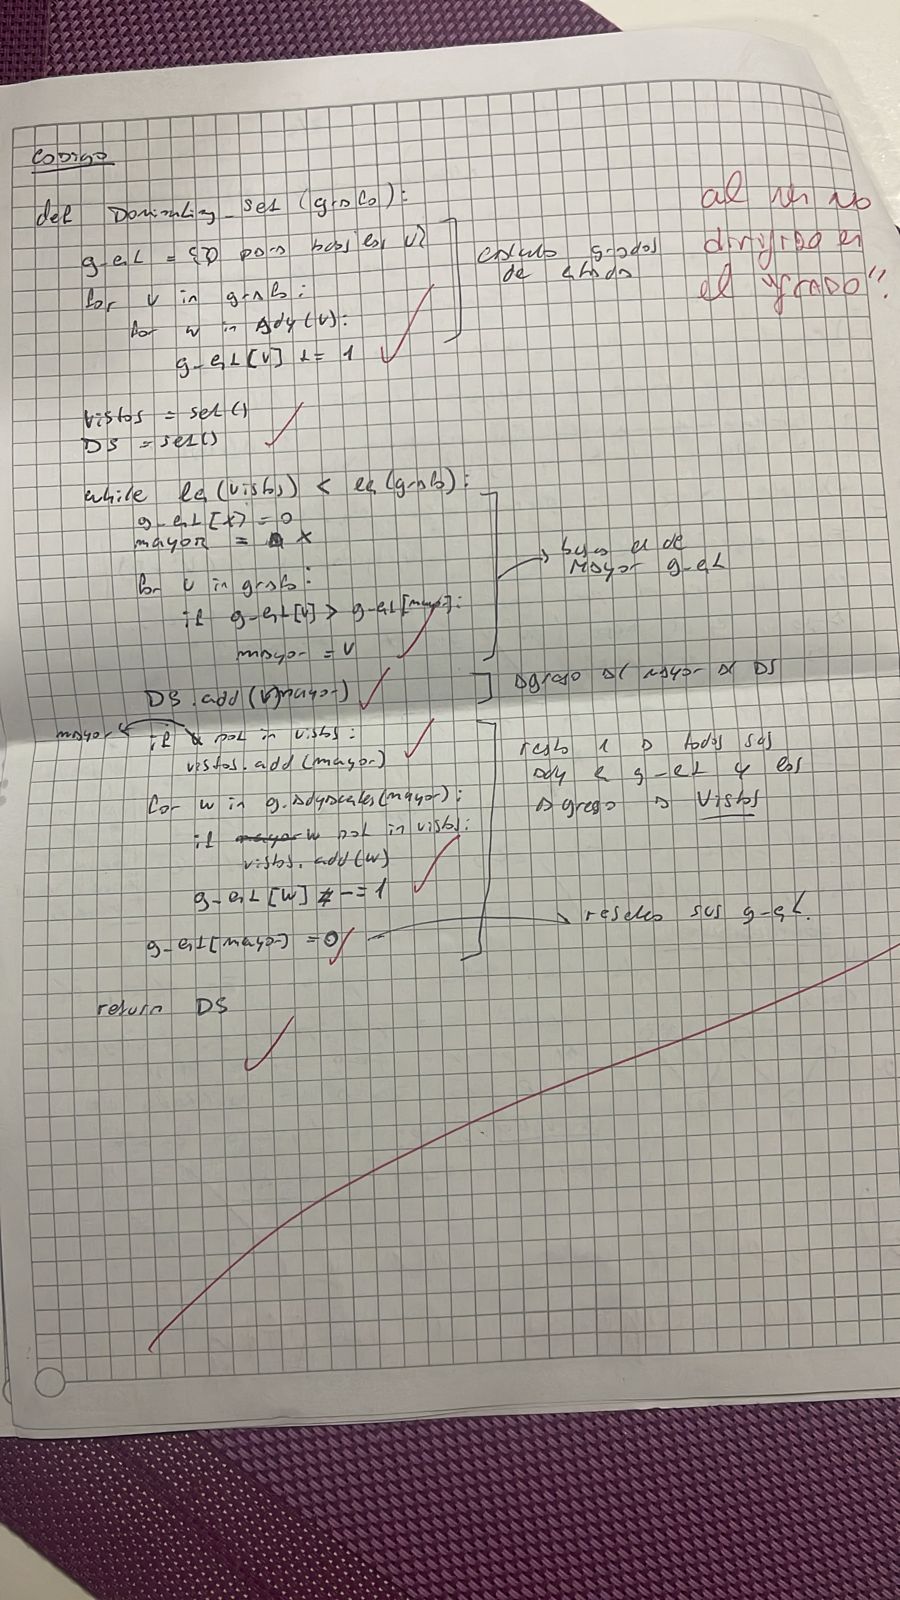 Código
al ser no
dirigido es
el "GRADO".
def Dominating_set (grafo):
g_ent = {} para todos los v
for v in grafo:
for w in Ady(v):
g_ent[v] += 1
calculo grados
de
vistos = set()
DS = set()
while len(vistos) < len(grafo):
g_ent[x] = 0
mayor = x
for v in grafo:
if g_ent[v] > g_ent[mayor]:
mayor = v
busco el de
mayor g_ent
DS.add(mayor)
Agrego al mayor al DS
mayor
if not in vistos:
vistos.add(mayor)
for w in g.adyacentes(mayor):
if w not in vistos:
vistos.add(w)
g_ent[w] -= 1
g_ent[mayor] = 0
resto 1 a todos sus
ady en g_ent y los
agrego a vistos
reseteo sus g_ent.
return DS